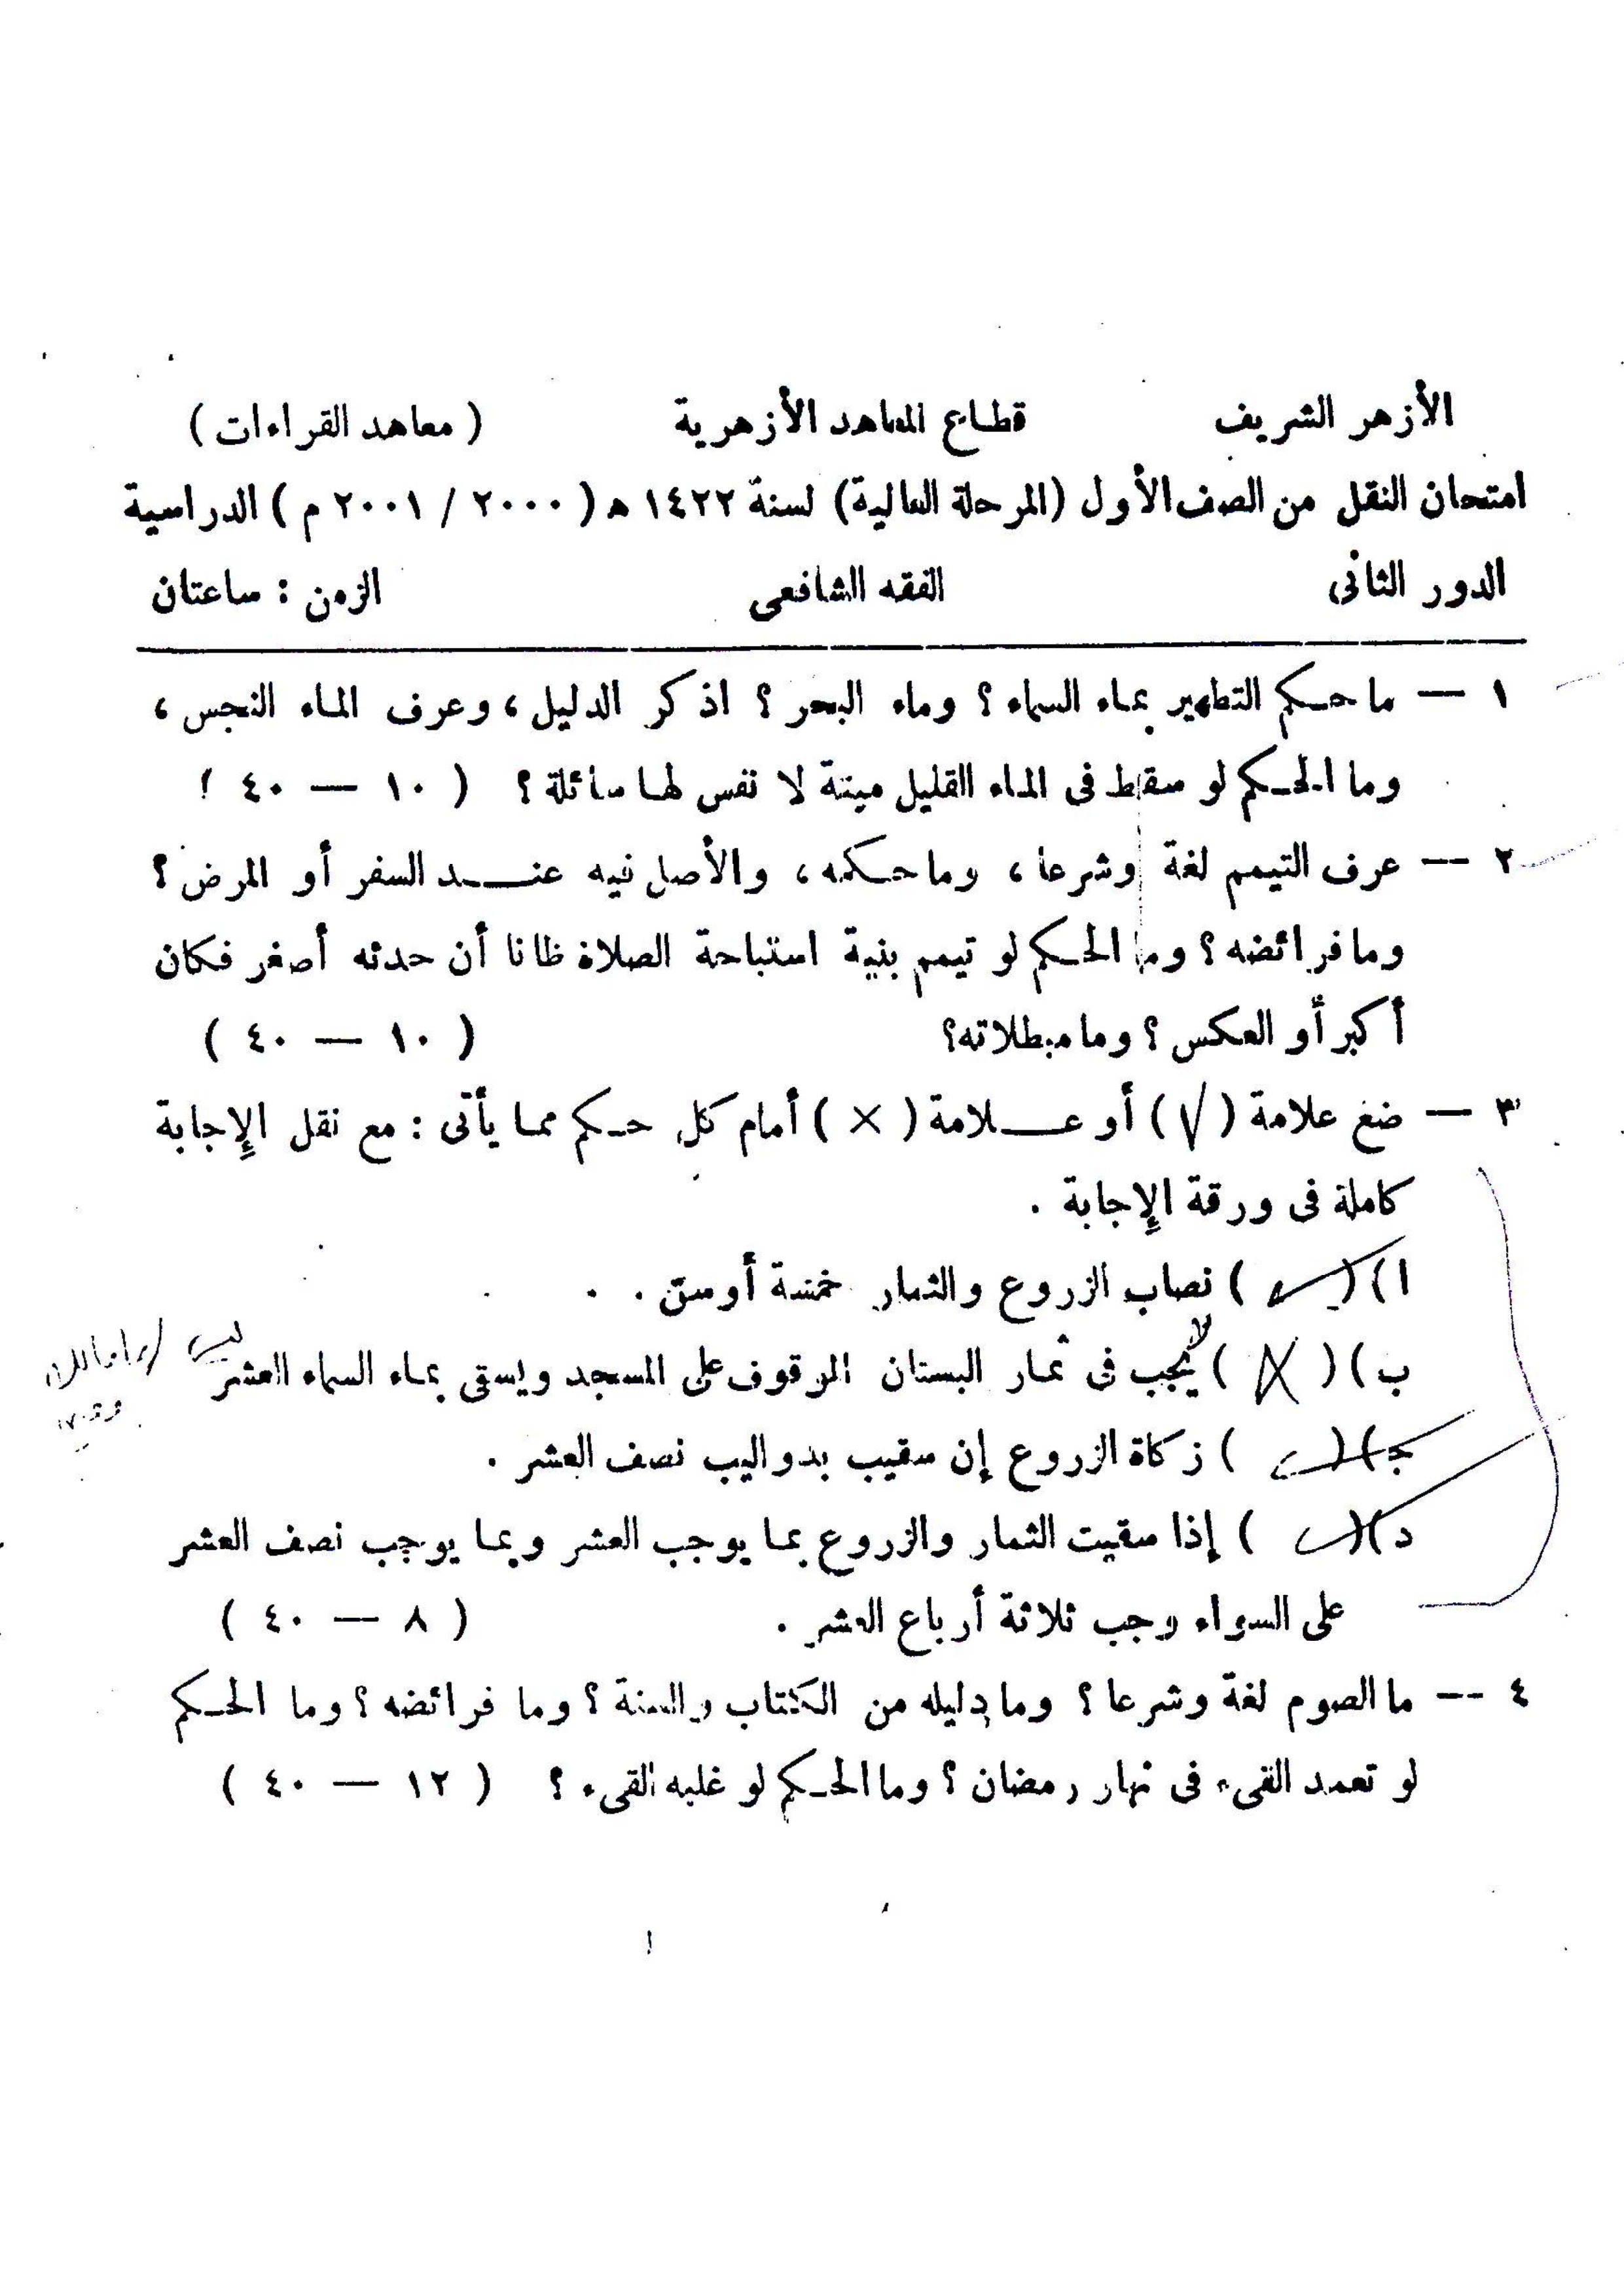 الأزهر الشريف قطاع المعاهد الأزهرية ( معاهد القراءات )
امتحان النقل من الصف الأول (المرحلة العالية) لسنة ١٤٢٢ ه ( ٢٠٠٠ / ٢٠٠١ م ) الدراسية
الدور الثانى الفقه الشافعى الزمن : ساعتان
١ — ما حكم التطهير بماء السماء ؟ وماء البحر ؟ اذكر الدليل ، وعرف الماء النجس ،
وما الحكم لو سقط فى الماء القليل ميتة لا نفس لها سائلة ؟ ( ١٠ — ٤٠ )
٢ — عرف التيمم لغة وشرعا ، وما حكمه ، والأصل فيه عند السفر أو المرض ؟
وما فرائضه ؟ وما الحكم لو تيمم بنية استباحة الصلاة ظانا أن حدثه أصغر فكان
أكبر أو العكس ؟ وما مبطلاته؟ ( ١٠ — ٤٠ )
٣ — ضع علامة ( √ ) أو علامة ( × ) أمام كل حكم مما يأتى : مع نقل الإجابة
كاملة فى ورقة الإجابة .
ا ) ( ) نصاب الزروع والثمار خمسة أوسق .
لا
ب ) ( X ) يجب فى ثمار البستان الموقوف على المسجد ويسقى بماء السماء العشر
ج ) ( ) زكاة الزروع إن سقيب بدواليب نصف العشر .
د ) ( ) إذا سقيت الثمار والزروع بما يوجب العشر وبما يوجب نصف العشر
على السواء وجب ثلاثة أرباع العشر . ( ٨ — ٤٠ )
٤ — ما الصوم لغة وشرعا ؟ وما دليله من الكتاب والسنة ؟ وما فرائضه ؟ وما الحكم
لو تعمد القىء فى نهار رمضان ؟ وما الحكم لو غلبه القىء ؟ ( ١٢ — ٤٠ )